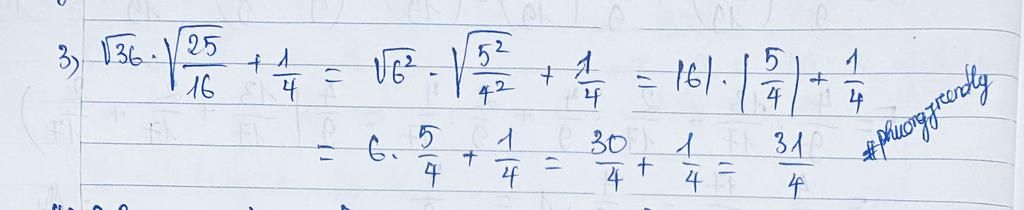 3) √36 . √(25/16) + 1/4 = √6² - √(5²/4²) + 1/4 = |6| . |5/4| + 1/4
= 6 . 5/4 + 1/4 = 30/4 + 1/4 = 31/4
#phuongfriendly